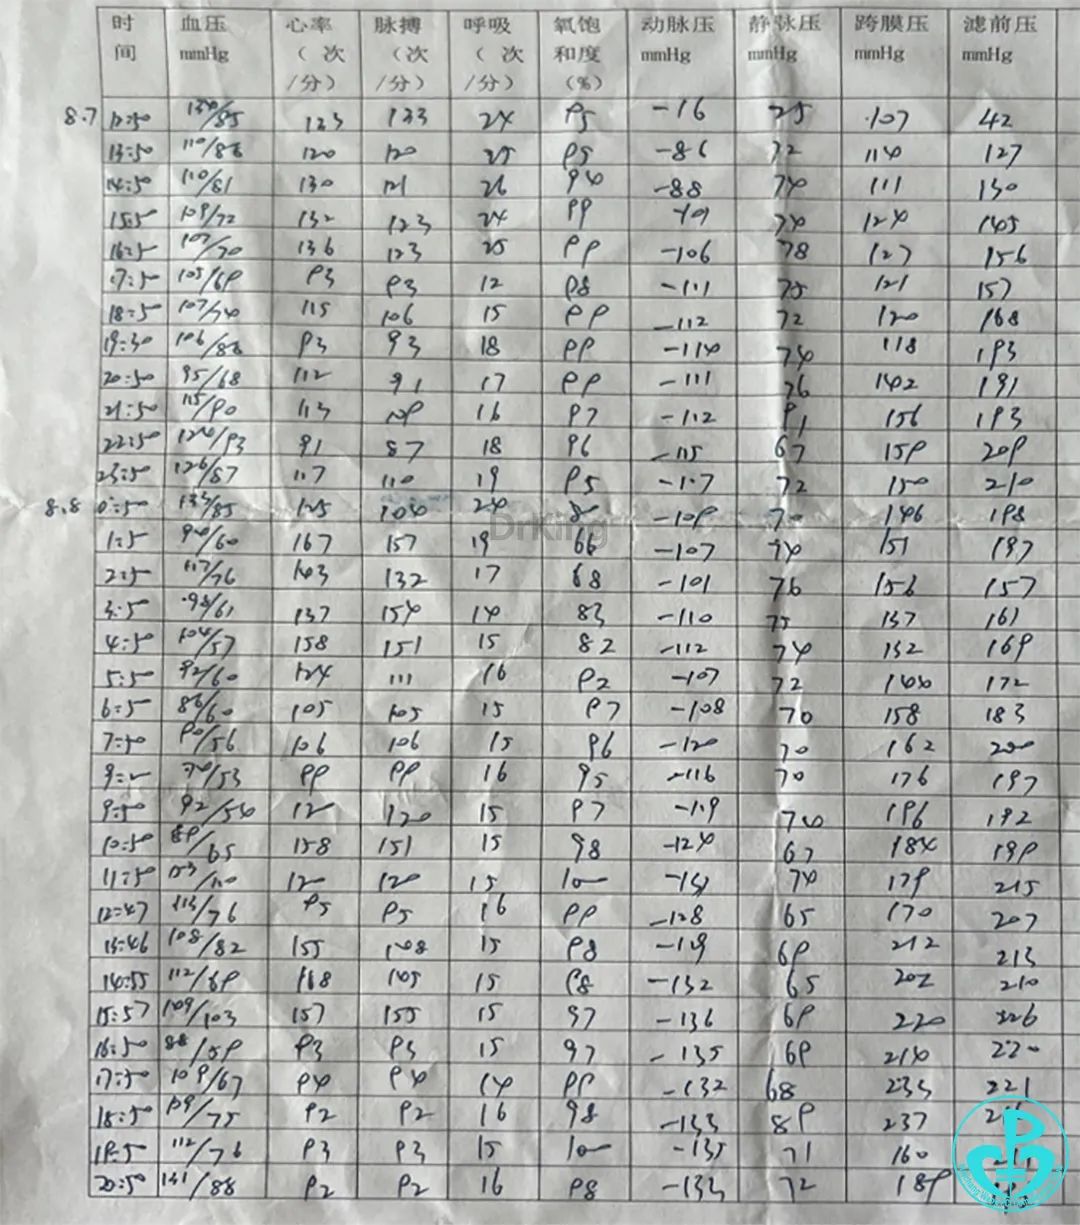 时间 血压 mmHg 心率(次/分) 脉搏(次/分) 呼吸(次/分) 氧饱和度(%) 动脉压 mmHg 静脉压 mmHg 跨膜压 mmHg 滤前压 mmHg
8.7 12:50 134/85 123 123 24 95 -16 25 107 42
13:50 110/88 120 120 25 95 -86 72 114 127
14:50 110/81 130 121 26 94 -88 74 111 130
15:5 109/72 132 123 24 99 -101 74 124 145
16:5 107/70 136 123 25 99 -106 78 127 156
17:5 105/69 93 93 12 98 -111 75 121 157
18:5 107/74 115 106 15 99 -112 72 120 168
19:30 106/88 93 93 18 99 -114 74 118 193
20:50 95/68 112 91 17 99 -111 76 142 191
21:50 115/90 113 16 97 -112 91 156 193
22:50 124/93 91 87 18 96 -115 67 159 209
23:50 126/87 117 110 19 95 -117 72 150 210
8.8 0:50 133/85 125 104 24 80 -109 70 146 198
1:5 94/60 167 157 19 66 -107 74 151 197
2:5 117/76 143 132 17 68 -101 76 156 157
3:5 98/61 137 154 14 83 -110 75 137 161
4:50 104/57 158 151 15 82 -112 74 132 169
5:50 92/60 124 111 16 92 -107 72 144 172
6:5 86/60 105 105 15 97 -108 70 158 183
7:50 90/56 106 106 15 96 -120 70 162 200
74/53 99 99 16 95 -116 70 176 197
9:50 92/54 120 120 15 97 -119 74 196 192
10:50 89/65 158 151 15 98 -124 67 184 199
11:50 153/110 120 120 15 100 -131 74 179 215
12:47 113/76 95 95 16 99 -128 65 170 207
13:46 108/82 155 108 15 98 -119 69 212 213
14:55 112/69 168 105 15 98 -132 65 202 210
15:57 109/103 157 155 15 97 -136 69 220 226
16:50 88/59 93 93 15 97 -135 69 214 220
17:50 109/67 94 94 14 99 -132 68 233 221
18:50 119/75 92 92 16 98 -133 89 237
19:5 112/76 93 93 15 100 -135 71 160
20:50 131/88 92 92 16 98 -133 72 189
DrKing